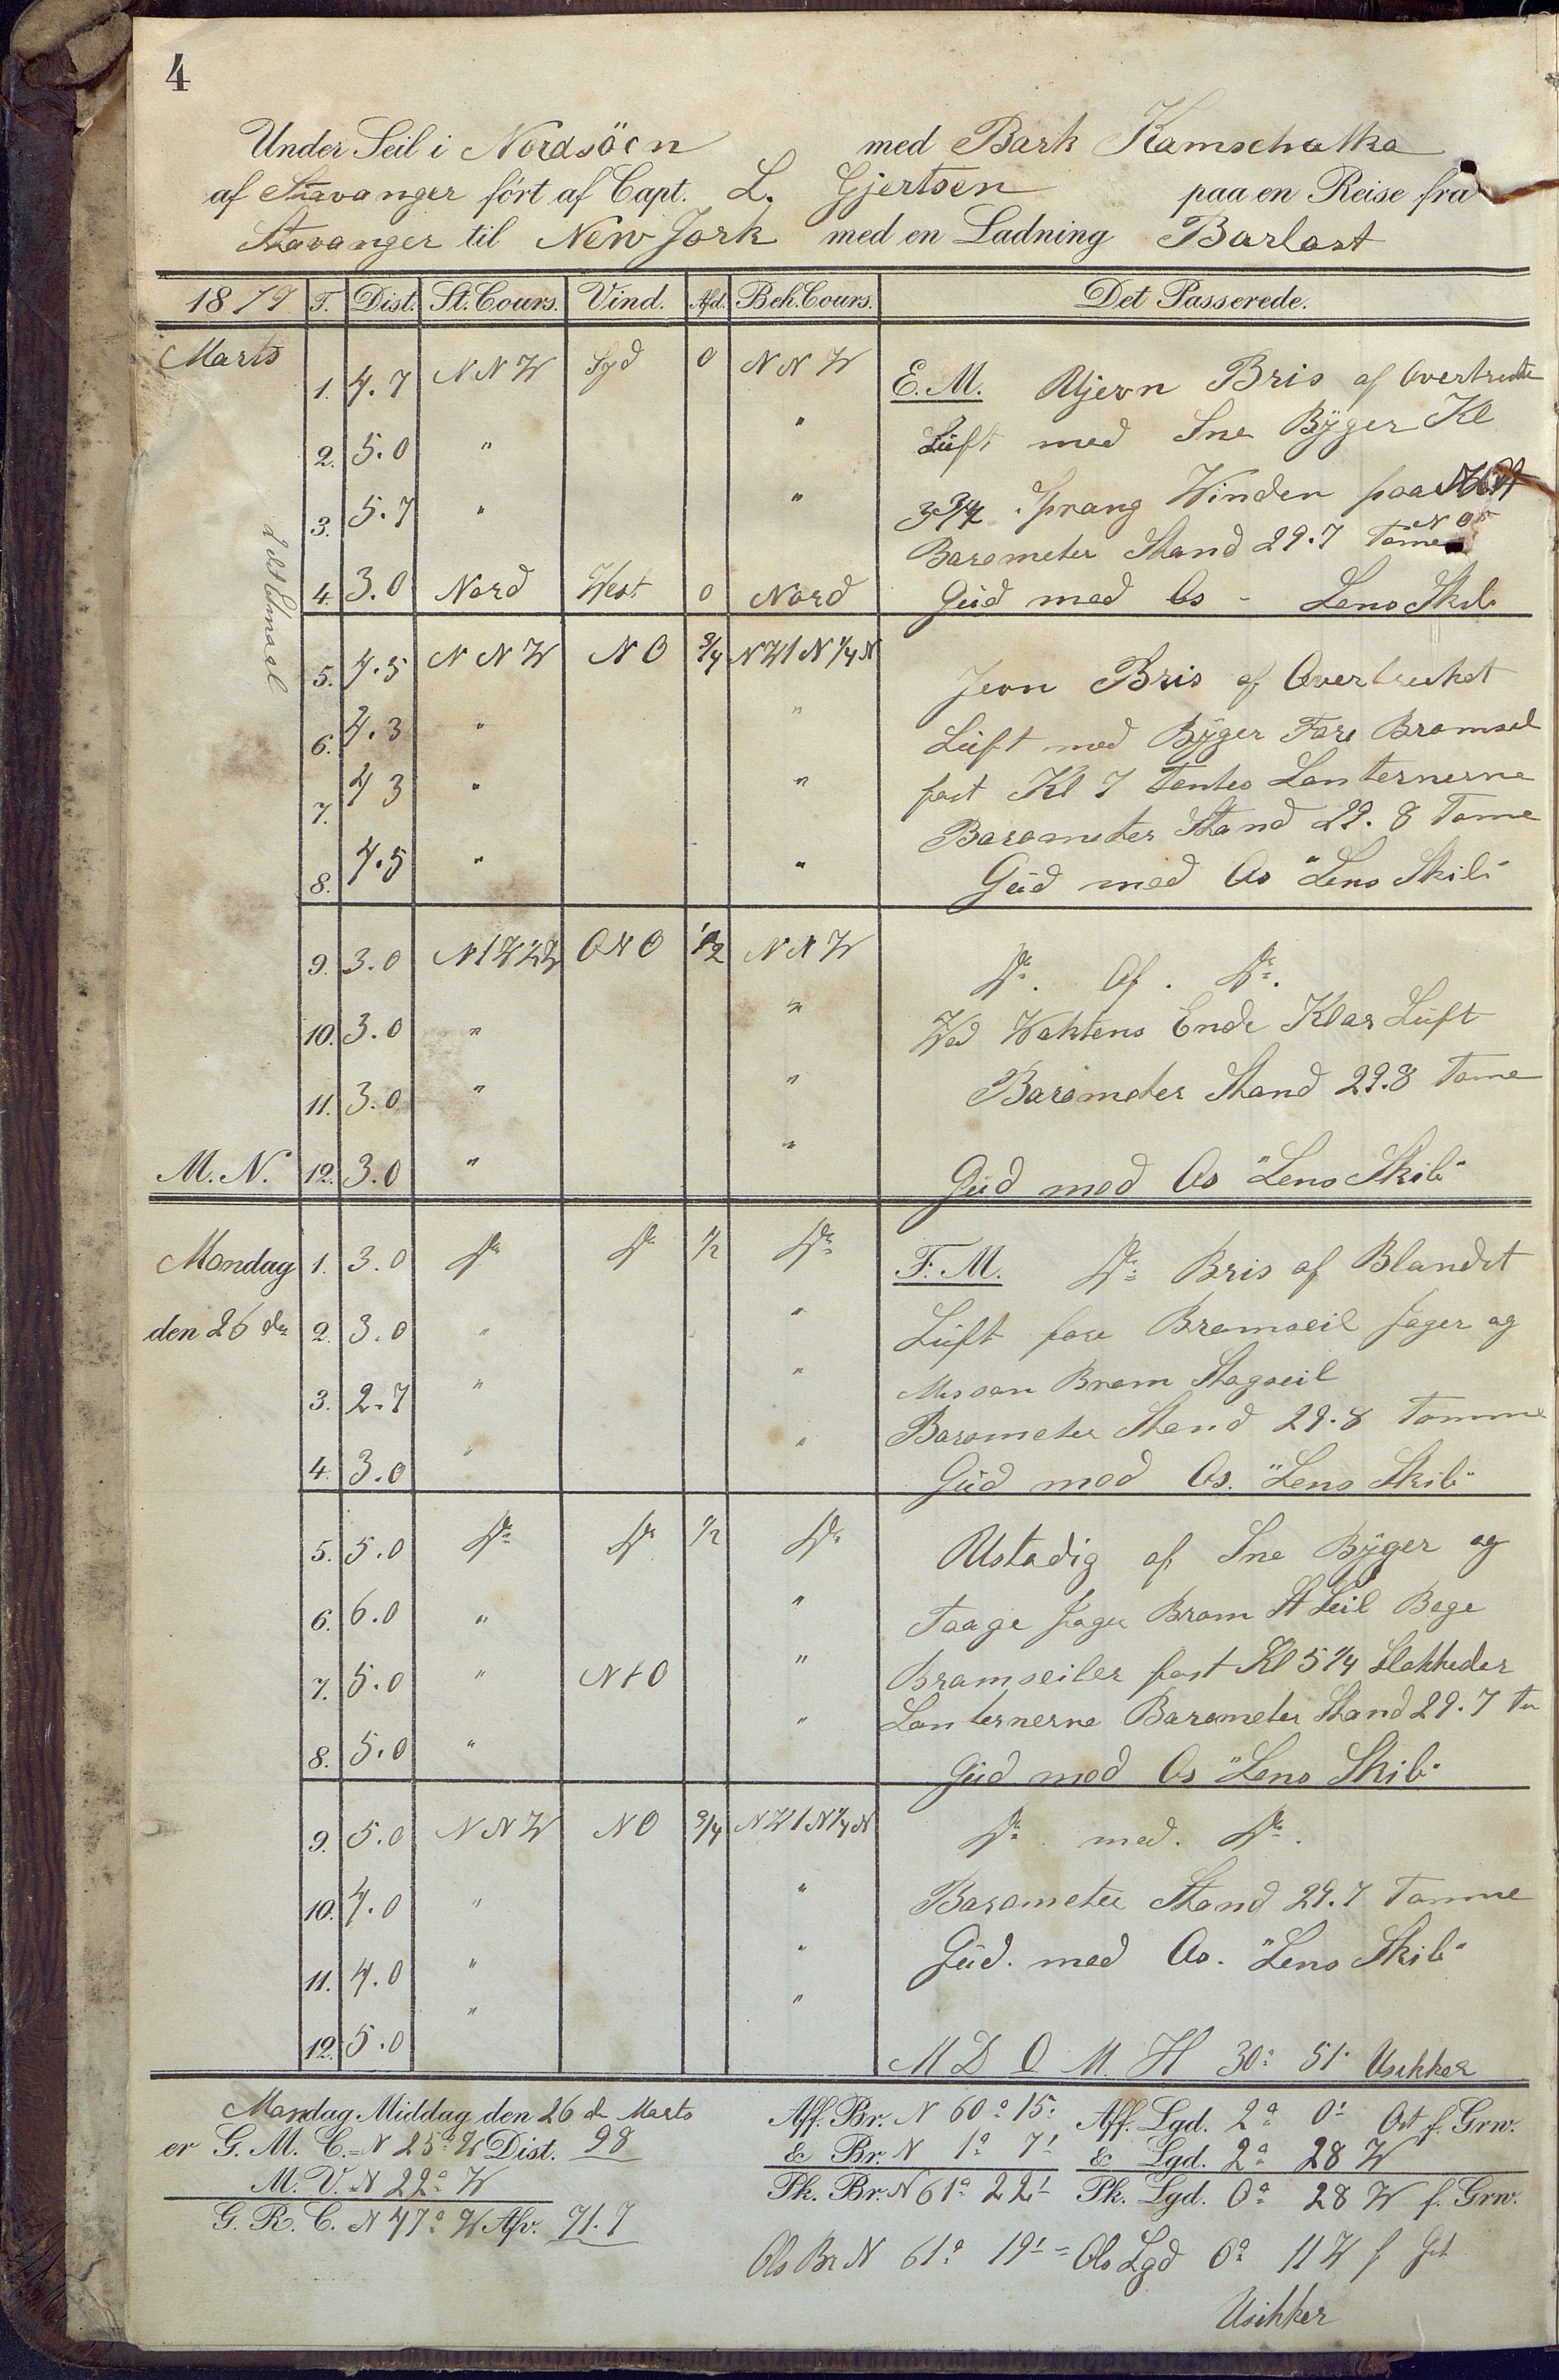 4
Under Seil i Nordsöen med Bark Kamschatka
af Stavanger ført af Capt. L. Gjertsen paa en Reise fra
Stavanger til New Jork med en Ladning Barlast
1879 T. Dist. St. Cours. Vind. Afd. Beh. Cours. Det Passerede.
Marts 1. 4.7 NNW Syd 0 NNW E.M. Ujevn Bris af Overtrukte
2. 5.0 " " Luft med Sne Byger Kl
3. 5.7 " " 3 3/4 Sprang Winden paa
Barometer Stand 29.7 Tome
4. 3.0 Nord West 0 Nord Gud med Os - Lens Skib
5. 4.5 NNW NO 3/4 NWtN 1/4 N Jevn Bris af Overtrukket
6. 4.3 " " Luft med Byger Fore Bramseil
7. 4 3 " " fast Kl 7 Tentes Lanternerne
Barometer Stand 29.8 Tome
8. 4.5 " " Gud med Os "Lens Skib"
9. 3.0 NtW 1/2 W ONO 1/2 NNW Do. Af. Do.
10. 3.0 " " Wed Waktens Ende Klar Luft
11. 3.0 " " Barometer Stand 29.8 Tome
M.N. 12. 3.0 " " Gud med Os "Lens Skib"
Mandag 1. 3.0 Do Do 1/2 Do F.M. Do Bris af Blandet
den 26 de 2. 3.0 " " Luft fore Bramseil Jager og
3. 2.7 " " Messan Bram Stagseil
Barometer Stand 29.8 Tomme
4. 3.0 " " Gud med Os. "Lens Skib"
5. 5.0 Do Do 1/2 Do Ustadig af Sne Byger og
6. 6.0 " " Taage Jager Bram St Seil Bege
7. 5.0 " NtO " Bramseiler fast Kl 5 1/4 Slekkedes
Lanternerne Barometer Stand 29.7 To
8. 5.0 " " Gud med Os "Lens Skib"
9. 5.0 NNW NO 3/4 NWtN 1/4 N Do. med. Do.
10. 4.0 " " Barometer Stand 29.7 Tomme
11. 4.0 " " Gud. med Os. "Lens Skib"
12. 5.0 " " M D O M. H 30° 51' Usikker
Mandag Middag den 26 de Marts Aff. Br. N 60° 15' Aff. Lgd. 2° 0' Ost f. Grw.
er G. M. C. = N 25° W Dist. 98 & Br. N 1° 7' & Lgd. 2° 28 W
M. V. N 22° W Pk. Br. N 61° 22' Pk. Lgd. 0° 28 W f. Grw.
G. R. C. N 47° W Afv. 71.7
Obs Br N 61° 19' = Obs Lgd 0° 11 W f
Usikker